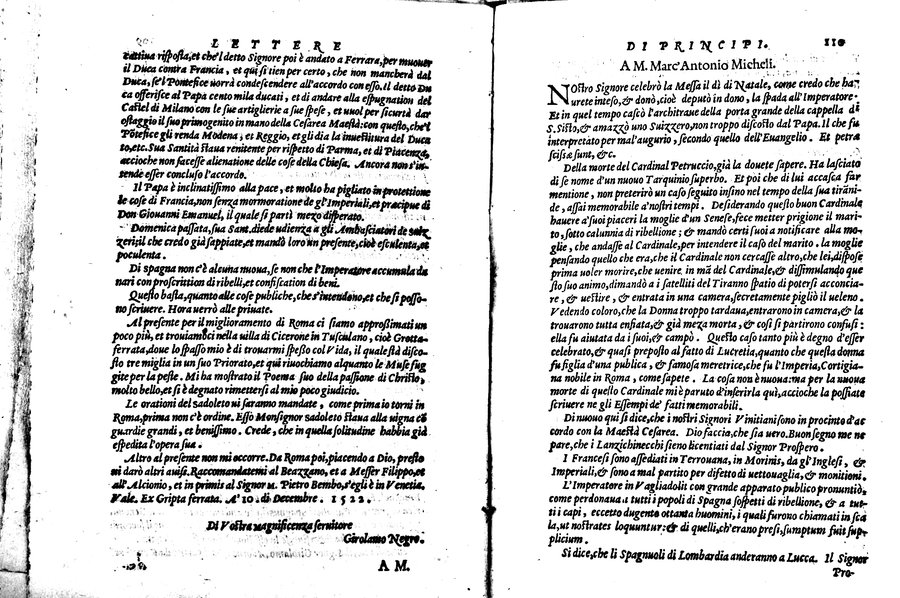 LETTERE
cattiua risposta, et che'l detto Signore poi è andato a Ferrara, per muouer
il Duca contra Francia, et qui si tien per certo, che non mancherà dal
Duca, se'l Pontefice uorrà condescendere all'accordo con esso. Il detto Du
ca offerisce al Papa cento mila ducati, et di andare alla espugnation del
Castel di Milano con le sue artiglierie a sue spese, et uuol per sicurtà dar
ostaggio il suo primogenito in mano della Cesarea Maestà: con questo, che'l
Pōtefice gli renda Modena, et Reggio, et gli dia la inuestitura del Duca
to, etc. Sua Santità staua renitente per rispetto di Parma, et di Piacenza,
accioche non facesse alienatione delle cose della Chiesa. Ancora non s'in-
tende esser concluso l'accordo.
Il Papa è inclinatissimo alla pace, et molto ha pigliato in protettione
le cose di Francia, non senza mormoratione de gl'Imperiali, et precipue di
Don Giouanni Emanuel, il quale si partì mezo disperato.
Domenica passata, sua Sant. diede udienza a gli Ambasciatori de suiz
zeri; il che credo già sappiate, et mandò loro un presente, cioè esculenta, et
poculenta.
Di spagna non c'è alcuna nuoua, se non che l'Imperatore accumula da
nari con proscrittion di ribelli, et confiscation di beni.
Questo basta, quanto alle cose publiche, che s'intendono, et che si posso-
no scriuere. Hora uerrò alle priuate.
Al presente per il miglioramento di Roma ci siamo approssimati un
poco più, et trouiamoci nella uilla di Cicerone in Tusculano, cioè Grotta-
ferrata, doue lo spasso mio è di trouarmi spesso col Vida, il quale sta disco-
sto tre miglia in un suo Priorato, et qui riuochiamo alquanto le Muse fug
gite per la peste. Mi ha mostrato il Poema suo della passione di Christo,
molto bello, et si è degnato rimettersi al mio poco giudicio.
Le orationi del sadoleto ui saranno mandate, come prima io torni in
Roma, prima non c'è ordine. Esso Monsignor sadoleto staua alla uigna cō
guardie grandi, et benissimo. Crede, che in quella solitudine habbia già
espedita l'opera sua.
Altro al presente non mi occorre. Da Roma poi, piacendo a Dio, presto
ui darò altri auisi. Raccomandatemi al Beazzano, et a Messer Filippo, et
all'Alcionio, et in primis al Signor M. Pietro Bembo, s'egli è in Venetia.
Vale. Ex Gripta ferrata. A' 10. di Decembre. 1522.
Di Vostra magnificenza seruitore
Girolamo Negro.
A M.
DI PRINCIPI. 110
A M. Marc'Antonio Micheli.
NOstro Signore celebrò la Messa il dì di Natale, come credo che ha-
urete inteso, & donò, cioè deputò in dono, la spada all'Imperatore.
Et in quel tempo cascò l'architraue della porta grande della cappella di
S. Sisto, & amazzò uno Suizzero, non troppo discosto dal Papa. Il che fu
interpretato per mal'augurio, secondo quello dell'Euangelio. Et petræ
scissæ sunt, &c.
Della morte del Cardinal Petruccio, già la douete sapere. Ha lasciato
di se nome d'un nuouo Tarquinio superbo. Et poi che di lui accasca far
mentione, non preterirò un caso seguito insino nel tempo della sua tiran̄i-
de, assai memorabile a'nostri tempi. Desiderando questo buon Cardinale
hauere a'suoi piaceri la moglie d'un Senese, fece metter prigione il mari-
to, sotto calunnia di ribellione; & mandò certi suoi a notificare alla mo-
glie, che andasse al Cardinale, per intendere il caso del marito. la moglie
pensando quello che era, che il Cardinale non cercasse altro, che lei, dispose
prima uoler morire, che uenire in mā del Cardinale, & dissimulando que
sto suo animo, dimandò a i satelliti del Tiranno spatio di potersi acconcia-
re, & uestire, & entrata in una camera, secretamente pigliò il ueleno.
Vedendo coloro, che la Donna troppo tardaua, entrarono in camera, & la
trouarono tutta enfiata, & già meza morta, & così si partirono confusi:
ella fu aiutata da i suoi, & campò. Questo caso tanto più è degno d'esser
celebrato, & quasi preposto al fatto di Lucretia, quanto che questa donna
fu figlia d'una publica, & famosa meretrice, che fu l'Imperia, Cortigia-
na nobile in Roma, come sapete. La cosa non è nuoua: ma per la nuoua
morte di quello Cardinale mi è paruto d'inserirla qui, accioche la possiate
scriuere ne gli Essempi de' fatti memorabili.
Di nuouo qui si dice, che i nostri Signori Vinitiani sono in procinto d'ac
cordo con la Maestà Cesarea. Dio faccia, che sia uero. Buon segno me ne
pare, che i Lanzichinecchi sieno licentiati dal Signor Prospero.
I Francesi sono assediati in Terrouana, in Morinis, da gl'Inglesi, &
Imperiali, & sono a mal partito per difetto di uettouaglia, & monitioni.
L'Imperatore in Vagliadolit con grande apparato publico pronuntiò,
come perdonaua a tutti i popoli di Spagna sospetti di ribellione, & a tut-
ti i capi, eccetto dugento ottanta huomini, i quali furono chiamati in sca
la, ut nostrates loquuntur: & di quelli, ch'erano presi, sumptum fuit sup-
plicium.
Si dice, che li Spagnuoli di Lombardia anderanno a Lucca. Il Signor
Pro-